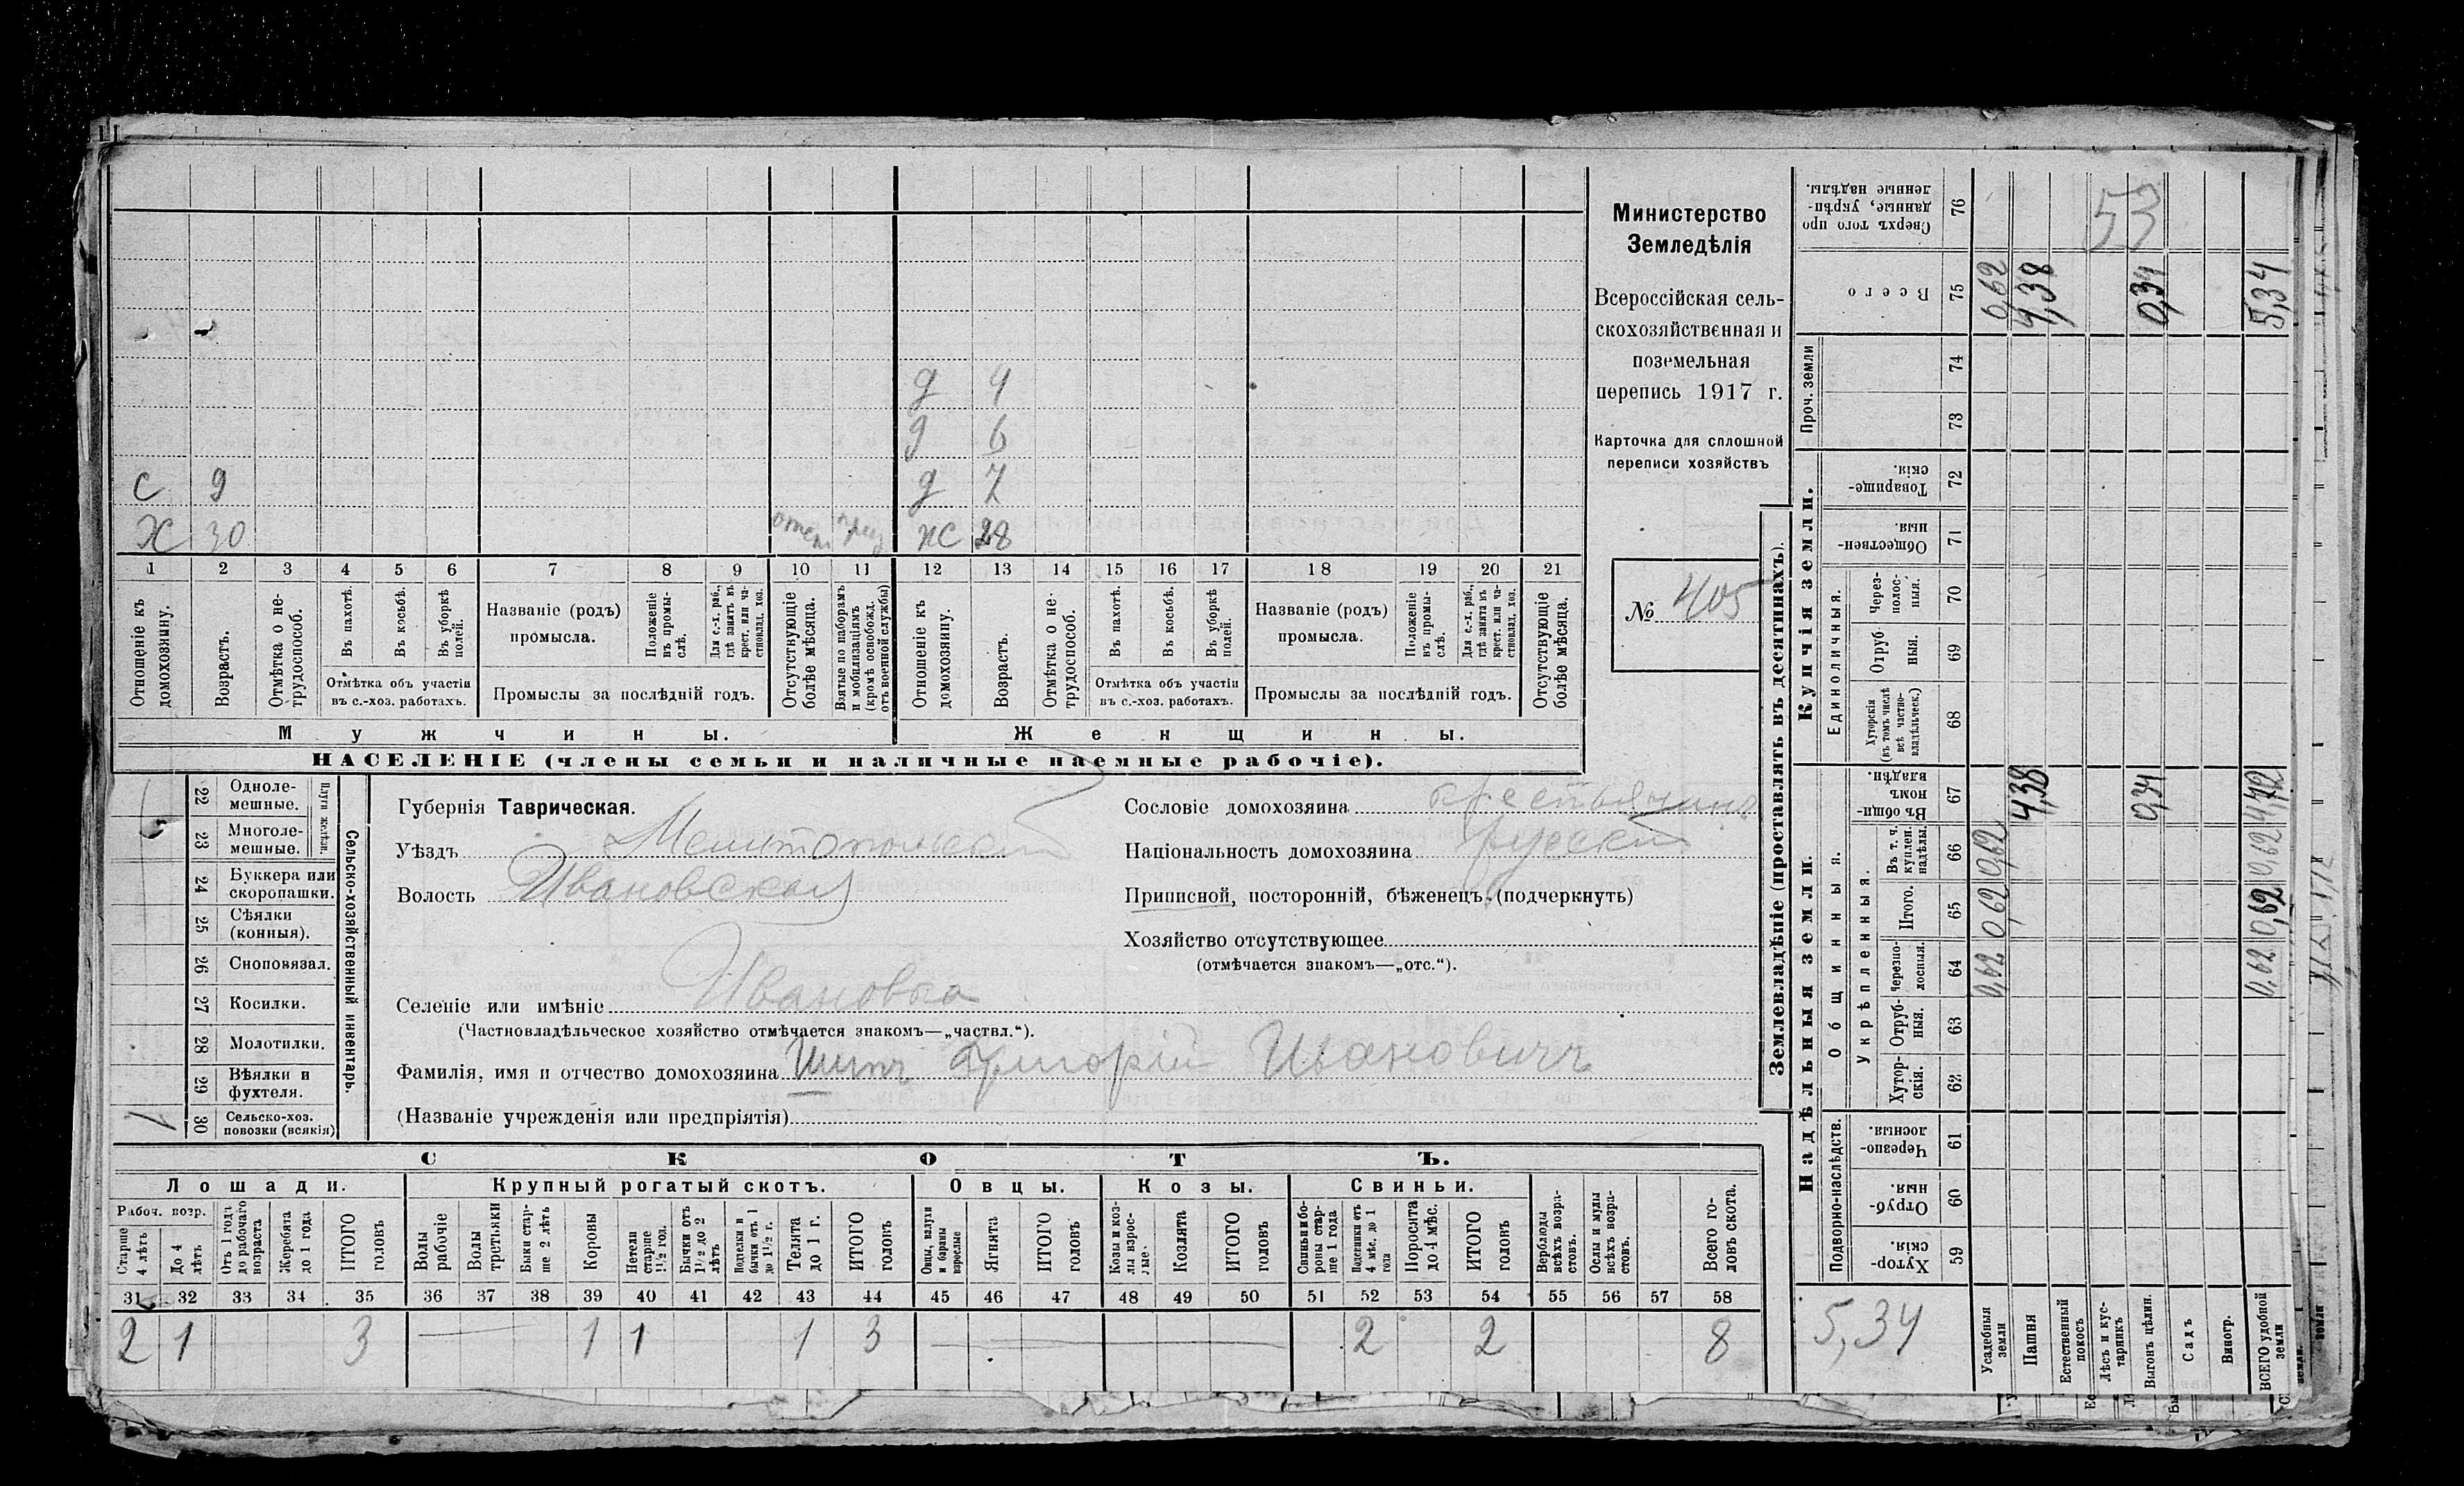 д 4
д 6
с 9 д 7
Х 30 отст приз ж 28
1 2 3 4 5 6 7 8 9 10 11 12 13 14 15 16 17 18 19 20 21
Отношеніе къ домохозяину.
Возрастъ.
Отмѣтка о не-трудоспособ.
Въ пахотѣ.
Въ косьбѣ.
Въ уборкѣ полей.
Отмѣтка объ участіи
въ с.-хоз. работахъ.
Названіе (родъ)
промысла.
Положеніе въ промы-слѣ.
Для с.-х. раб., гдѣ занятъ въ крест. или ча-стновлад. хоз.
Промыслы за послѣдній годъ.
Отсутствующіе болѣе мѣсяца.
Взятые по наборамъ и мобилизаціямъ (кромѣ освобожд. отъ военной службы)
Отношеніе къ домохозяину.
Возрастъ.
Отмѣтка о не-трудоспособ.
Въ пахотѣ.
Въ косьбѣ.
Въ уборкѣ полей.
Отмѣтка объ участіи
въ с.-хоз. работахъ.
Названіе (родъ)
промысла.
Положеніе въ промы-слѣ.
Для с.-х. раб., гдѣ занята въ крест. или ча-стновлад. хоз.
Промыслы за послѣдній годъ.
Отсутствующіе болѣе мѣсяца.
Мужчины.
Женщины.
НАСЕЛЕНІЕ (члены семьи и наличные наемные рабочіе).
Министерство
Земледѣлія
Всероссійская сель-
скохозяйственная и
поземельная
перепись 1917 г.
Карточка для сплошной
переписи хозяйствъ
№ 405
22 Одноле-мешные.
23 Многоле-мешные.
Плуги желѣзн.
24 Буккера или скоропашки.
25 Сѣялки (конныя).
26 Сноповязал.
27 Косилки.
28 Молотилки.
29 Вѣялки и фухтеля.
1 30 Сельско-хоз. повозки (всякія)
Сельско-хозяйственный инвентарь.
Губернія Таврическая.
Уѣздъ Мелитопольскій
Волость Ивановская
Сословіе домохозяина крестьянинъ
Національность домохозяина русскій
Приписной, посторонній, бѣженецъ (подчеркнуть)
Хозяйство отсутствующее
(отмѣчается знакомъ—„отс.“).
Селеніе или имѣніе Ивановка
(Частновладѣльческое хозяйство отмѣчается знакомъ—„частвл.“).
Фамилія, имя и отчество домохозяина Григорій Ивановичъ
(Названіе учрежденія или предпріятія)
СКОТЪ.
Лошади. Крупный рогатый скотъ. Овцы. Козы. Свиньи.
Рабоч. возр.
Старше 4 лѣтъ
До 4 лѣтъ
Отъ 1 года до рабочаго возраста
Жеребята до 1 года
ИТОГО головъ
Волы рабочіе
Волы третьяки
Быки стар-ше 2 лѣтъ
Коровы
Нетели старше 1½ год.
Бычки отъ 1½ до 2 лѣтъ
Подтелки и бычки отъ 1 до 1½ г.
Телята до 1 г.
ИТОГО головъ
Овцы, валухи и бараны взрослые
Ягнята
ИТОГО головъ
Козы и коз-лы взрос-лые.
Козлята
ИТОГО головъ
Свиньи и бо-ровы стар-ше 1 года
Подсвинки отъ 4 мѣс. до 1 года
Поросята до 4 мѣс.
ИТОГО головъ
Верблюды всѣхъ возра-стовъ.
Ослы и мулы всѣхъ возра-стовъ.
Всего го-ловъ скота.
31 32 33 34 35 36 37 38 39 40 41 42 43 44 45 46 47 48 49 50 51 52 53 54 55 56 57 58
2 1 3 — 1 1 1 3 — 2 2 8
Землевладѣніе (проставлять въ десятинахъ).
Надѣльныя земли.
Купчія земли.
Проч. земли
Подворно-наслѣдств.
Общинныя.
Укрѣпленныя.
Единоличныя.
Сверхъ того про-данные, укрѣп-ленные надѣлы. 76 53
Всего 75 0,62 4,38 0,34 5,34
74
73
Товарище-скія. 72
Обществен-ныя. 71
Через-полос-ныя. 70
Отруб-ныя. 69
Хуторскія (въ томъ числѣ всѣ частно-владѣльческ.) 68
Въ общин-номъ владѣн. 67 4,38 0,34 4,72
Въ т. ч. куплен. надѣлы. 66 0,62 0,62
Итого. 65 0,62 0,62
Черезпо-лосныя. 64 0,62 0,62
Отруб-ныя. 63
Хутор-скія. 62
Черезпо-лосныя. 61
Отруб-ныя. 60
Хутор-скія. 59
5,34
Усадебныя земли
Пашня
Естественный покосъ
Лѣсъ и кус-тарникъ
Выгонъ цѣлин.
Садъ
Виногр.
ВСЕГО удобной земли